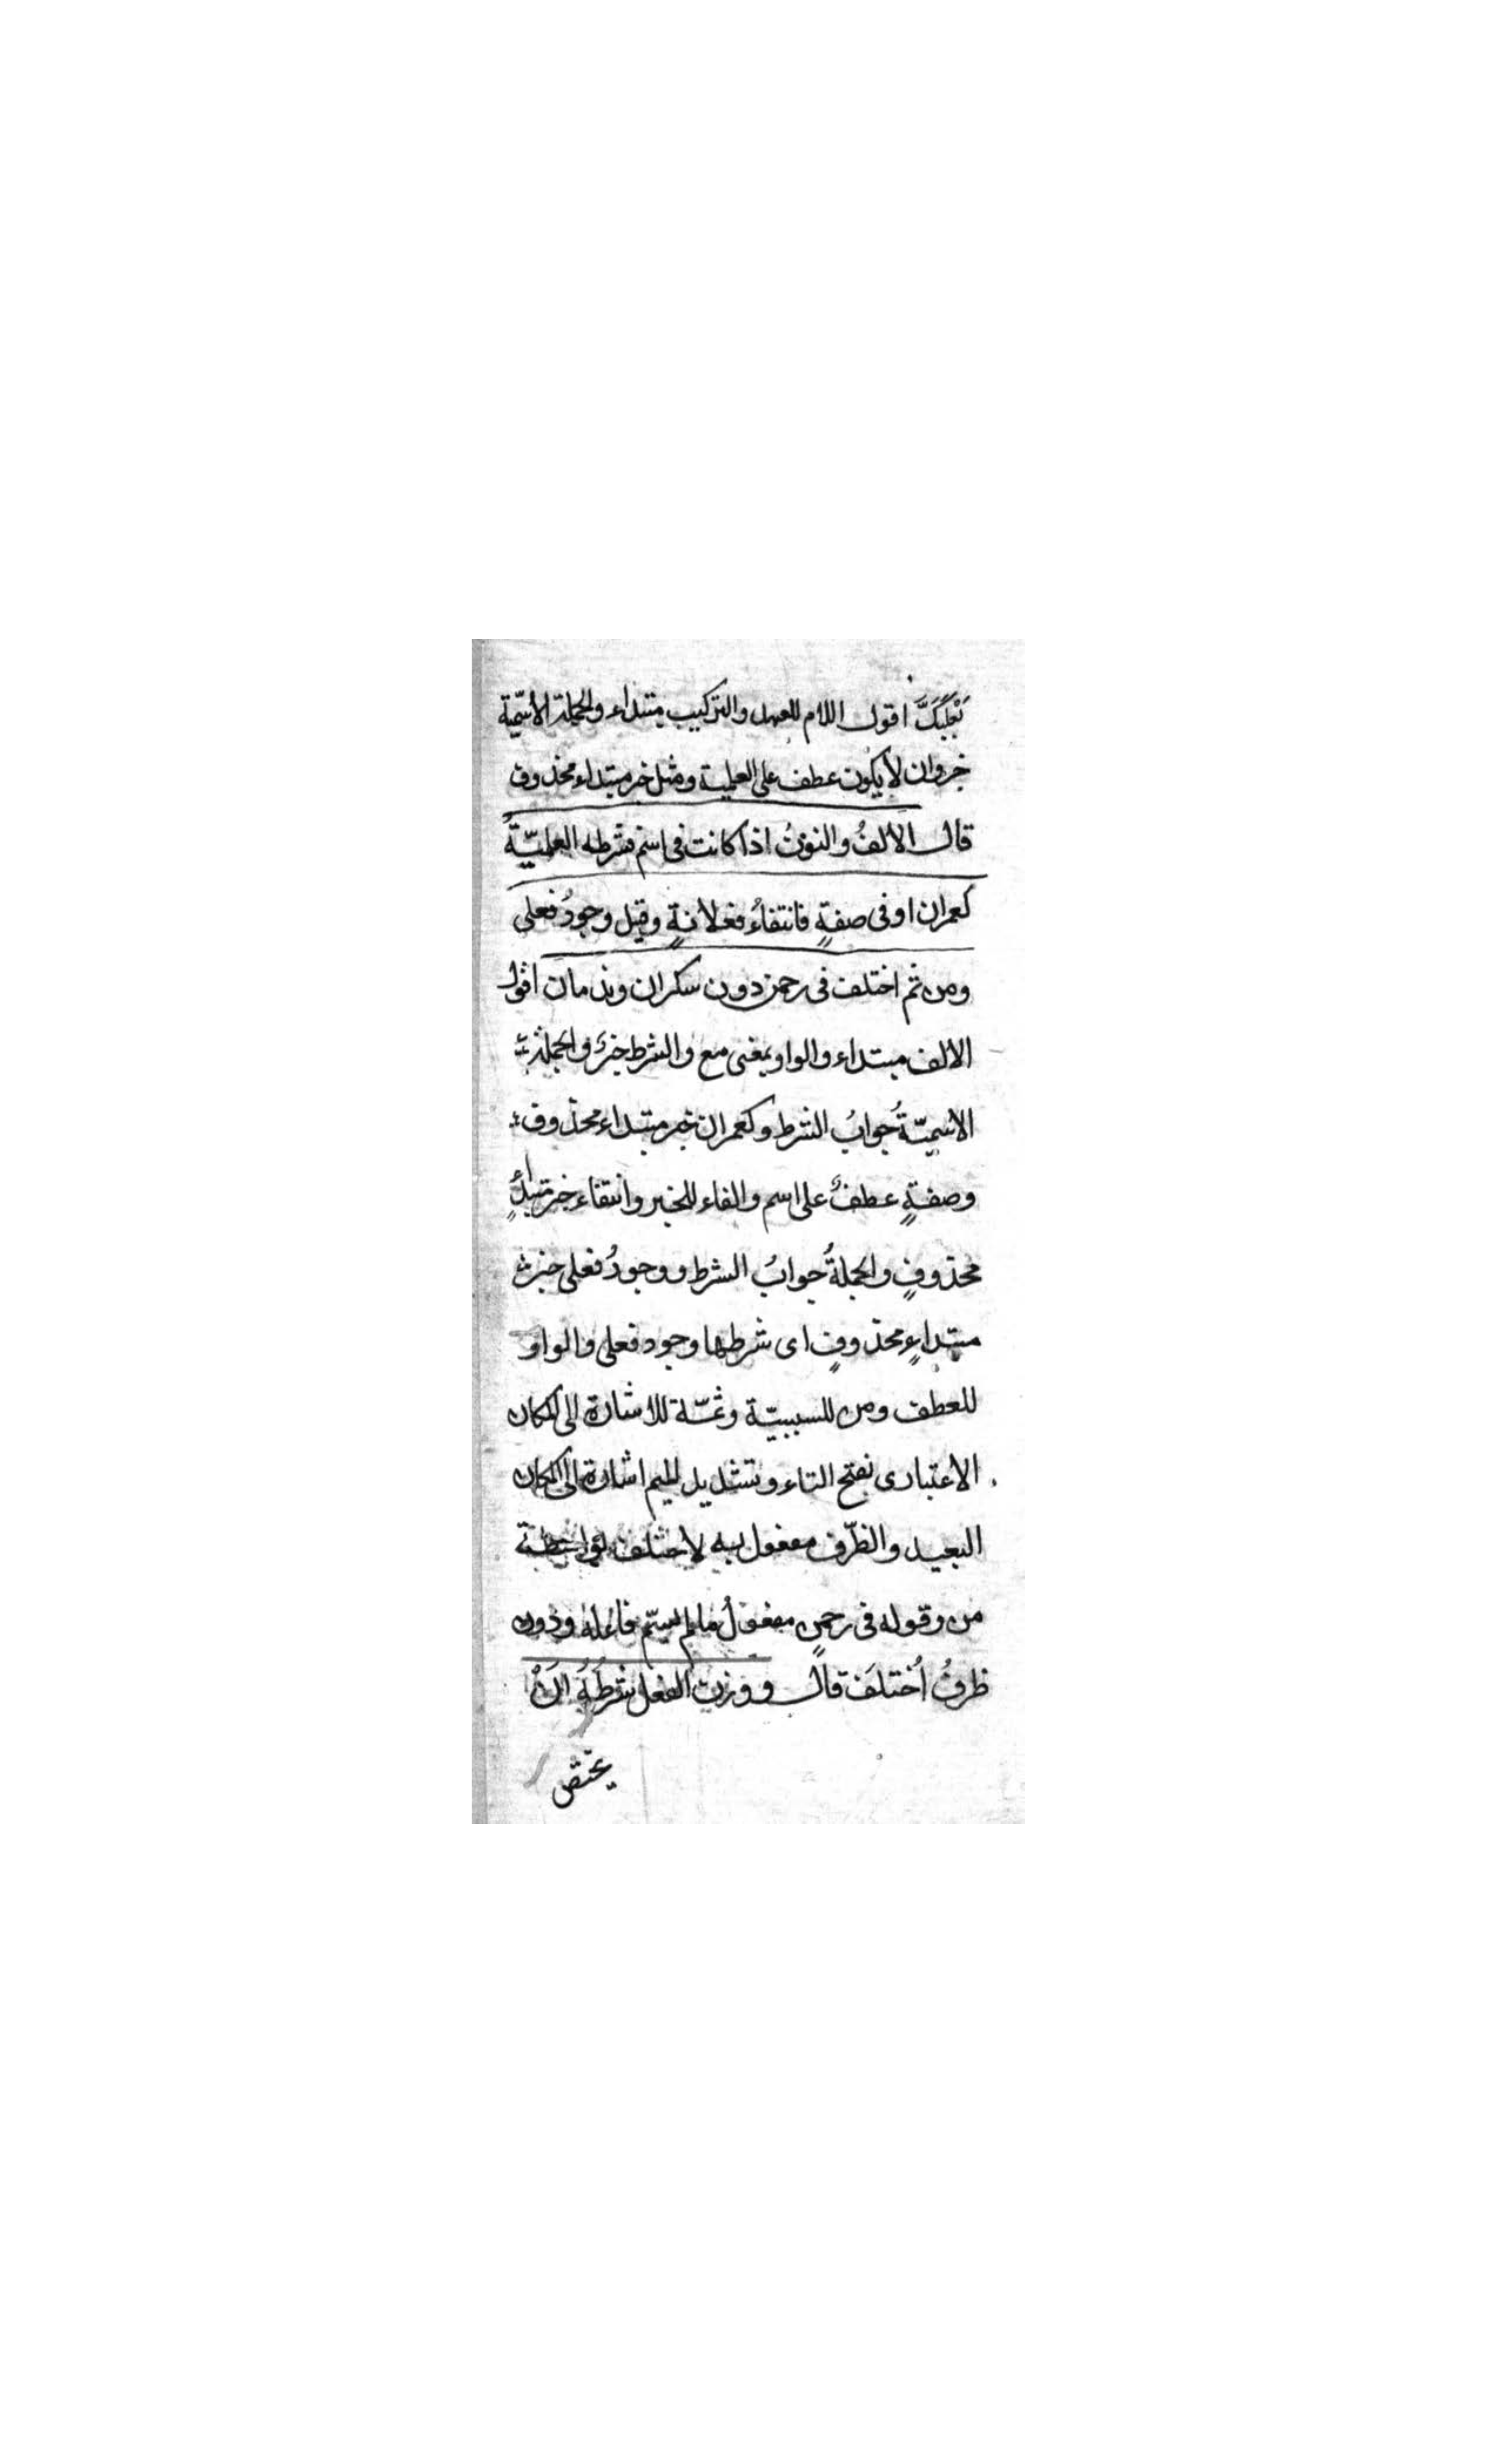 بَعْلَبَكَّ اقول اللام للعهد والتركيب مبتداء والجملة الاسميّة
خبر وان لا يكون عطف على العلمية ومثل خبر مبتداء محذوف
قال الالفُ والنونُ اذا كانت فى اسْم فشرطه العلميّةُ
كعمران او فى صفةٍ فانتفاءُ فعلانةٍ وقيل وجودُ فعلى
ومن ثم اختلف فى رحمن دون سكران وندمان اقول
الالف مبتداء والواو بمعنى مع والشرط خبرٌ والجملة
الاسميّةُ جوابُ الشرط وكعمران خبر مبتداء محذوف
وصفةٍ عطفٌ على اسم والفاء للخبر وانتفاء خبر مبتداءٍ
محذوفٍ والجملةُ جوابُ الشرط ووجودُ فعلى خبر
مبتداءٍ محذوفٍ اى شرطها وجود فعلى والواو
للعطف ومن للسببيّة وثمّة للاشارة الى المكان
الاعتبارى بفتح التاء وتشديد الميم اشارة الى المكان
البعيد والظّرف مفعول به لاختلف بواسطة
من وقوله فى رحمنٍ مفعولُ مالم يسمّ فاعله ودون
ظرفُ اُختلفَ قال ووزن الفعل شرطُهُ اَنْ
يختصّ